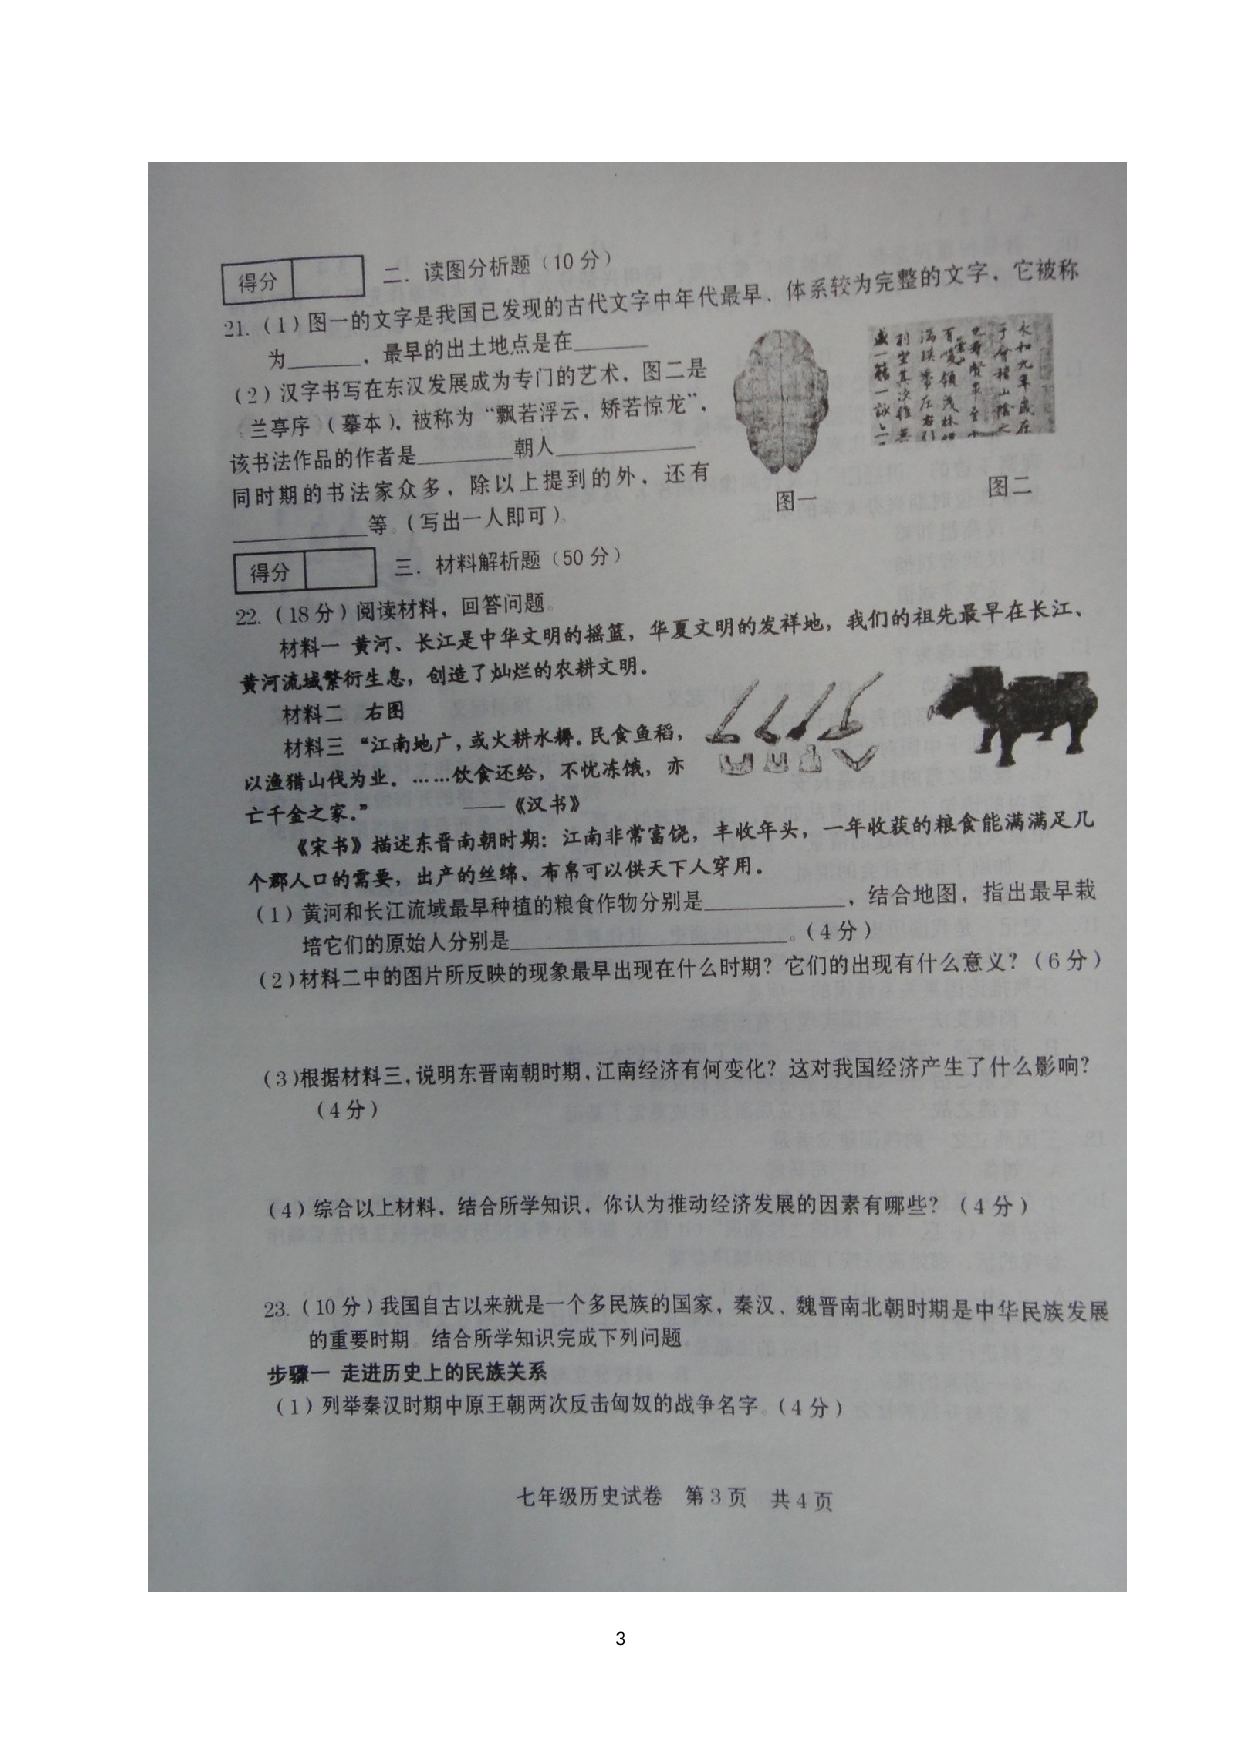 得分
二．读图分析题（10分）
21.（1）图一的文字是我国已发现的古代文字中年代最早、体系较为完整的文字，它被称
为______，最早的出土地点是在______
（2）汉字书写在东汉发展成为专门的艺术，图二是
兰亭序（摹本），被称为“飘若浮云，矫若惊龙”，
该书法作品的作者是________朝人____________．
同时期的书法家众多，除以上提到的外，还有
____________等。（写出一人即可）。
图一
图二
永和九年歲在
得分
三．材料解析题（50分）
22.（18分）阅读材料，回答问题。
材料一 黄河、长江是中华文明的摇篮，华夏文明的发祥地，我们的祖先最早在长江、
黄河流域繁衍生息，创造了灿烂的农耕文明。
材料二 右图
材料三 “江南地广，或火耕水耨。民食鱼稻，
以渔猎山伐为业。……饮食还给，不忧冻饿，亦
亡千金之家。” ——《汉书》
《宋书》描述东晋南朝时期：江南非常富饶，丰收年头，一年收获的粮食能满满足几
个郡人口的需要，出产的丝绵、布帛可以供天下人穿用。
（1）黄河和长江流域最早种植的粮食作物分别是____________，结合地图，指出最早栽
培它们的原始人分别是________________________。（4分）
（2）材料二中的图片所反映的现象最早出现在什么时期？它们的出现有什么意义？（6分）
（3）根据材料三，说明东晋南朝时期，江南经济有何变化？这对我国经济产生了什么影响？
（4分）
（4）综合以上材料，结合所学知识，你认为推动经济发展的因素有哪些？（4分）
23.（10分）我国自古以来就是一个多民族的国家，秦汉、魏晋南北朝时期是中华民族发展
的重要时期。结合所学知识完成下列问题
步骤一 走进历史上的民族关系
（1）列举秦汉时期中原王朝两次反击匈奴的战争名字。（4分）
七年级历史试卷 第3页 共4页
3